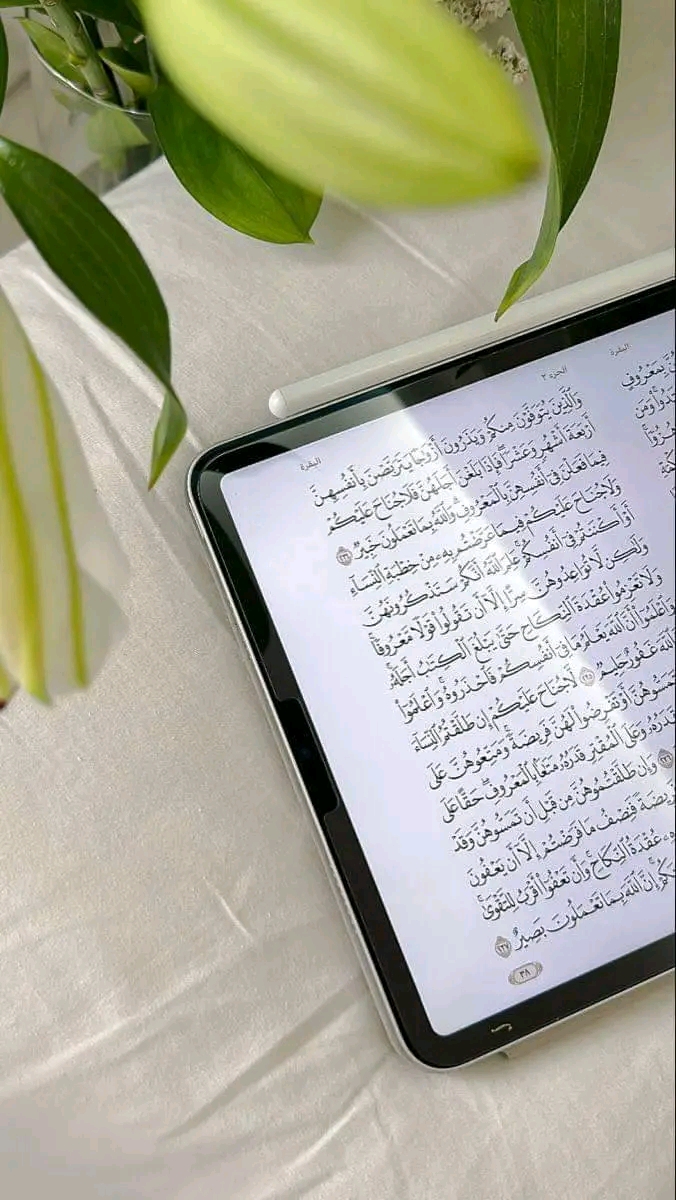 البقرة
بِمَعْرُوفٍ
وَمَن
هُزُوًا
الجزء ٢
البقرة
وَالَّذِينَ يُتَوَفَّوْنَ مِنكُمْ وَيَذَرُونَ أَزْوَٰجًا يَتَرَبَّصْنَ بِأَنفُسِهِنَّ
أَرْبَعَةَ أَشْهُرٍ وَعَشْرًا ۖ فَإِذَا بَلَغْنَ أَجَلَهُنَّ فَلَا جُنَاحَ عَلَيْكُمْ
فِيمَا فَعَلْنَ فِىٓ أَنفُسِهِنَّ بِالْمَعْرُوفِ ۗ وَاللَّهُ بِمَا تَعْمَلُونَ خَبِيرٌ ٢٣٤
وَلَا جُنَاحَ عَلَيْكُمْ فِيمَا عَرَّضْتُم بِهِۦ مِنْ خِطْبَةِ النِّسَآءِ
أَوْ أَكْنَنتُمْ فِىٓ أَنفُسِكُمْ ۚ عَلِمَ اللَّهُ أَنَّكُمْ سَتَذْكُرُونَهُنَّ
وَلَٰكِن لَّا تُوَاعِدُوهُنَّ سِرًّا إِلَّآ أَن تَقُولُوا۟ قَوْلًا مَّعْرُوفًا ۚ
وَلَا تَعْزِمُوا۟ عُقْدَةَ النِّكَاحِ حَتَّىٰ يَبْلُغَ الْكِتَٰبُ أَجَلَهُۥ ۚ
وَاعْلَمُوٓا۟ أَنَّ اللَّهَ يَعْلَمُ مَا فِىٓ أَنفُسِكُمْ فَاحْذَرُوهُ ۚ وَاعْلَمُوٓا۟
اللَّهَ غَفُورٌ حَلِيمٌ ٢٣٥ لَّا جُنَاحَ عَلَيْكُمْ إِن طَلَّقْتُمُ النِّسَآءَ
تَمَسُّوهُنَّ أَوْ تَفْرِضُوا۟ لَهُنَّ فَرِيضَةً ۚ وَمَتِّعُوهُنَّ عَلَى
قَدَرُهُۥ وَعَلَى الْمُقْتِرِ قَدَرُهُۥ مَتَٰعًۢا بِالْمَعْرُوفِ ۖ حَقًّا عَلَى
٢٣٦ وَإِن طَلَّقْتُمُوهُنَّ مِن قَبْلِ أَن تَمَسُّوهُنَّ وَقَدْ
فَرِيضَةً فَنِصْفُ مَا فَرَضْتُمْ إِلَّآ أَن يَعْفُونَ
عُقْدَةُ النِّكَاحِ ۚ وَأَن تَعْفُوٓا۟ أَقْرَبُ لِلتَّقْوَىٰ ۚ
إِنَّ اللَّهَ بِمَا تَعْمَلُونَ بَصِيرٌ ٢٣٧
٣٨